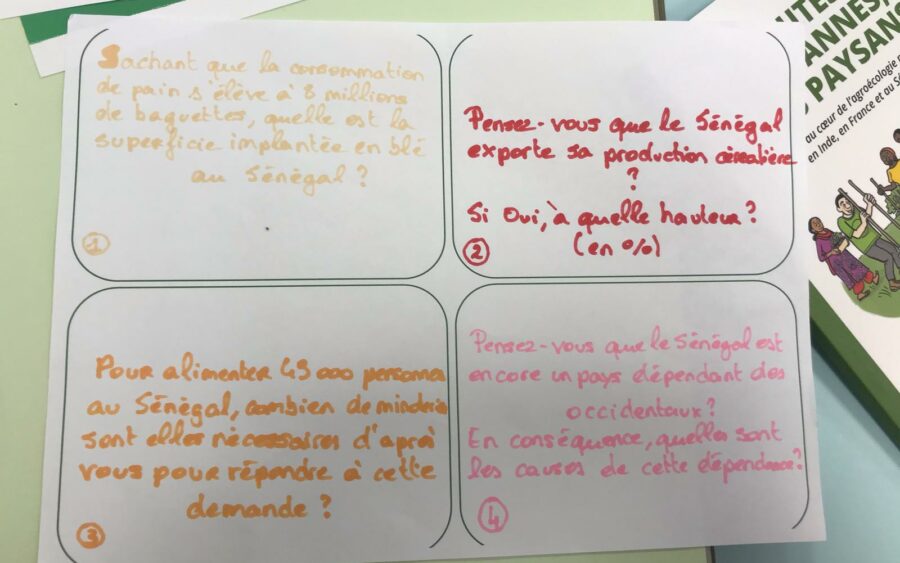 Sachant que la consommation
de pain s'élève à 8 millions
de baguettes, quelle est la
superficie implantée en blé
au Sénégal ?
1
Pensez-vous que le Sénégal
exporte sa production céréalière
?
Si Oui, à quelle hauteur ?
(en %)
2
Pour alimenter 49 000 personnes
au Sénégal, combien de minoterie
sont elles nécessaires d'après
vous pour répondre à cette
demande ?
3
Pensez-vous que le Sénégal est
encore un pays dépendant des
occidentaux ?
En conséquence, quelles sont
les causes de cette dépendance ?
4
PAYSANS
au cœur de l'agroécologie
en Inde, en France et au